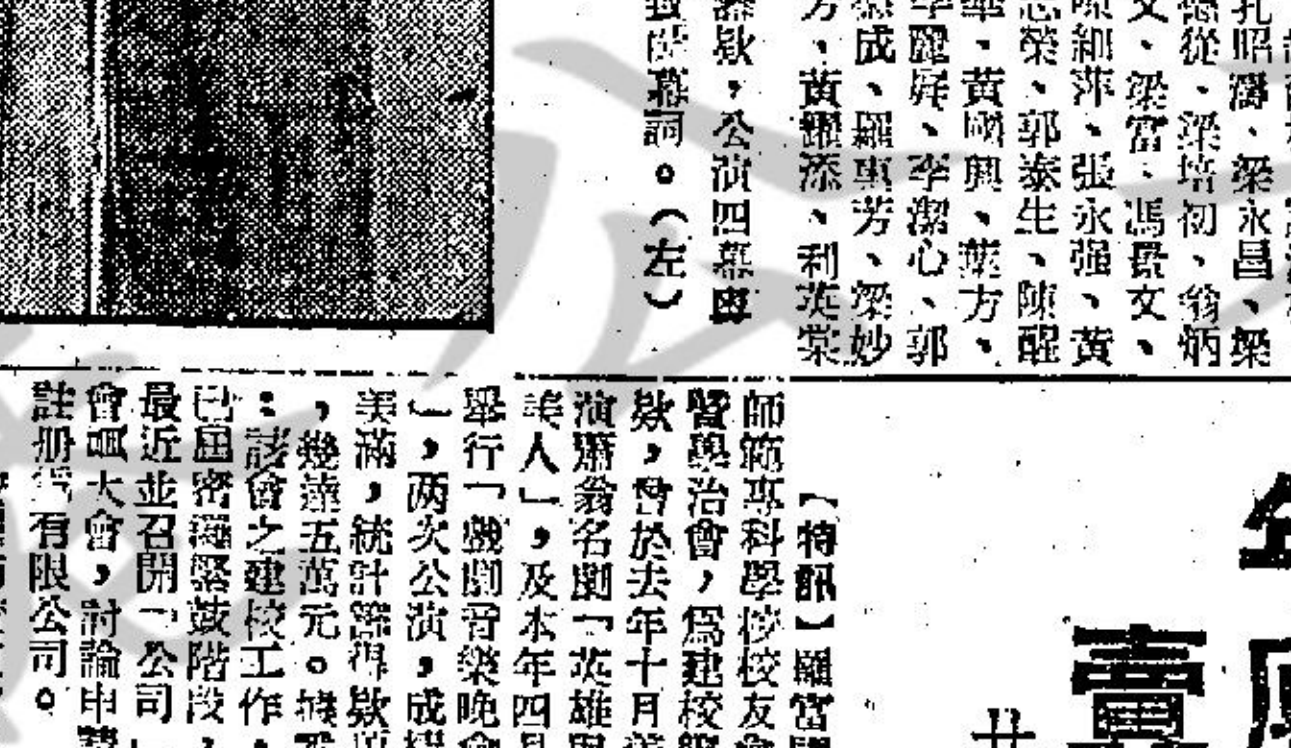 孔昭潯、梁永昌、梁
德從、梁培初、翁炳
文、梁富、馮景文、
陳細萍、張永强、黃
志榮、郭泰生、陳醒
華、黃國興、葉方、
李麗屏、李潔心、郭
成、羅惠芳、梁妙
芳、黃耀添、利英棠
籌欵，公演四幕粵
致開幕詞。（左）
【特訊】羅富國
師範專科學校校友會
暨學治會，爲建校籌
欵，曾於去年十月義
演蕭翁名劇「英雄與
美人」，及本年四月
舉行「戲劇音樂晚會
」，两次公演，成績
美滿，統計籌得欵項
，幾達五萬元。據悉
：該會之建校工作，
已屆密鑼緊鼓階段，
最近並召開「公司」
會員大會，討論申請
註册爲有限公司。
賣